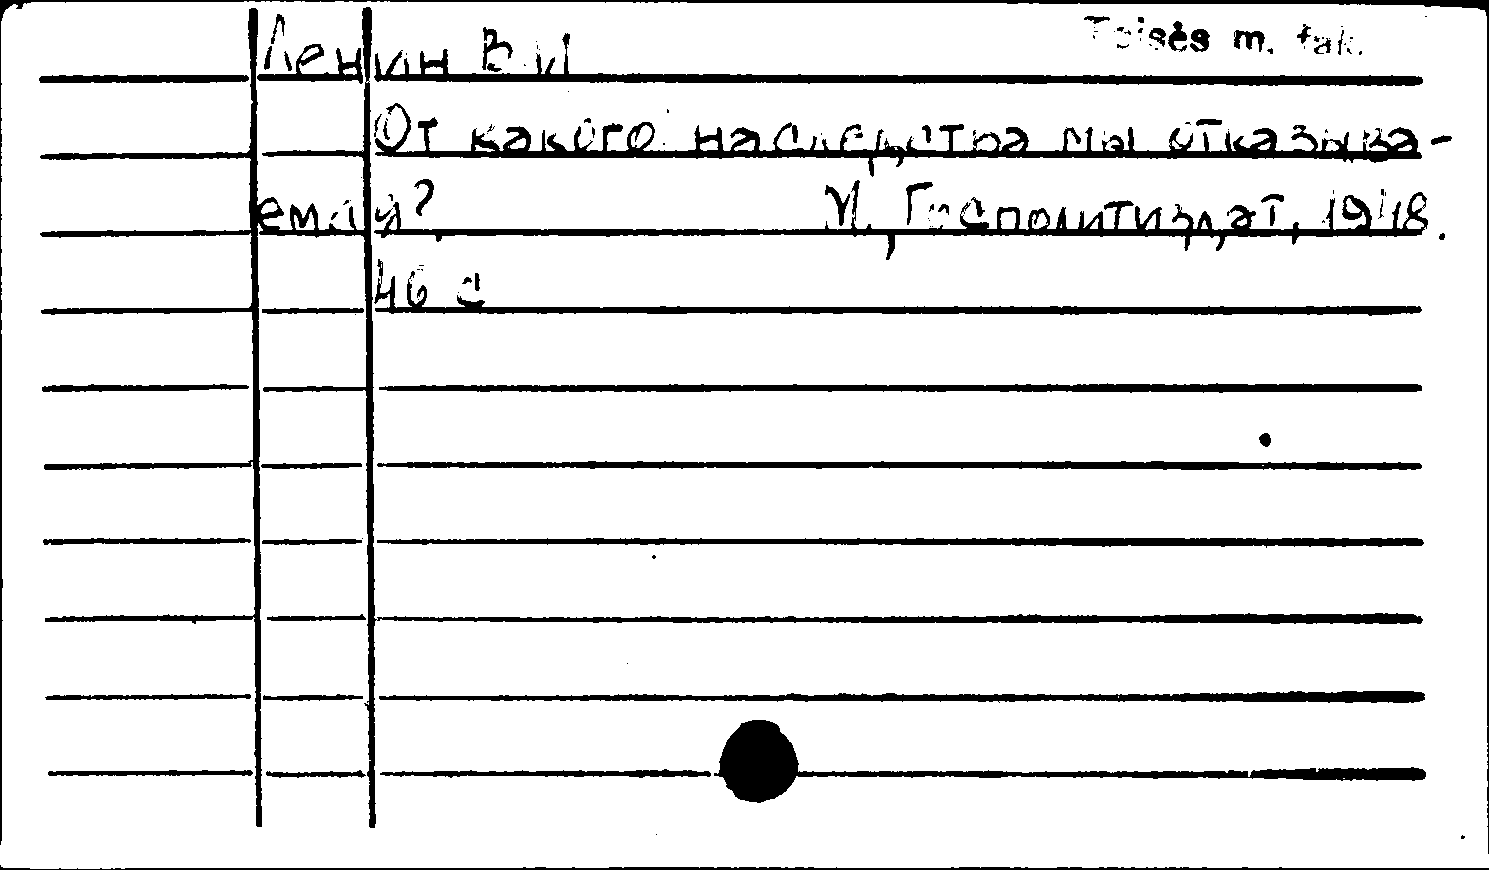 Ленин В.И.
Teisės m. fak.
От какого наследства мы отказыва-
емся?
М., Госполитиздат, 1948.
46 с